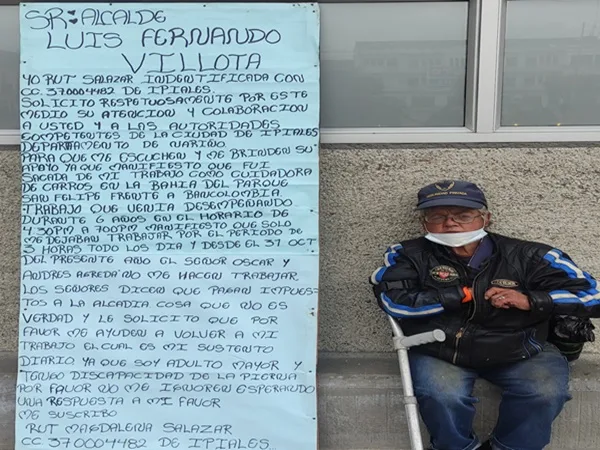 SR: ALCALDE
LUIS FERNANDO
VILLOTA
YO RUT SALAZAR INDENTIFICADA CON
CC. 370004482 DE IPIALES.
SOLICITO RESPETUOSAMENTE POR ESTE
MEDIO SU ATENCION Y COLABORACION
A USTED Y A LAS AUTORIDADES
COMPETENTES DE LA CIUDAD DE IPIALES
DEPARTAMENTO DE NARIÑO
PARA QUE ME ESCUCHEN Y ME BRINDEN SU
APOYO YA QUE MANIFIESTO QUE FUI
SACADA DE MI TRABAJO COMO CUIDADORA
DE CARROS EN LA BAHIA DEL PARQUE
SAN FELIPE FRENTE A BANCOLOMBIA
TRABAJO QUE VENIA DESEMPENANDO
DURANTE 6 AÑOS EN EL HORARIO DE
4:30PM A 700PM MANIFIESTO QUE SOLO
ME DEJABAN TRABAJAR POR EL PERIODO DE
3 HORAS TODO LOS DIA Y DESDE EL 31 OCT
DEL PRESENTE AÑO EL SEÑOR OSCAR Y
ANDRES AGREDA NO ME HACEN TRABAJAR
LOS SEÑORES DICEN QUE PAGAN IMPUES-
TOS A LA ALCADIA COSA QUE NO ES
VERDAD Y LE SOLICITO QUE POR
FAVOR ME AYUDEN A VOLVER A MI
TRABAJO EL CUAL ES MI SUSTENTO
DIARIO YA QUE SOY ADULTO MAYOR Y
TENGO DISCAPACIDAD DE LA PIERNA
POR FAVOR NO ME IGNOREN ESPERANDO
UNA RESPUESTA A MI FAVOR
ME SUSCRIBO
RUT MAGDALENA SALAZAR
CC 370004482 DE IPIALES...